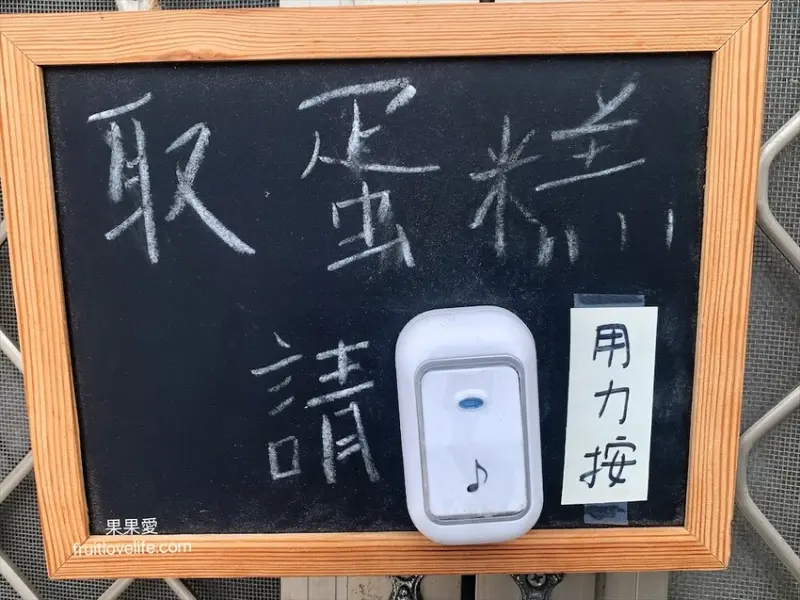 取蛋糕
請
用力按
果果愛
fruitlovelife.com